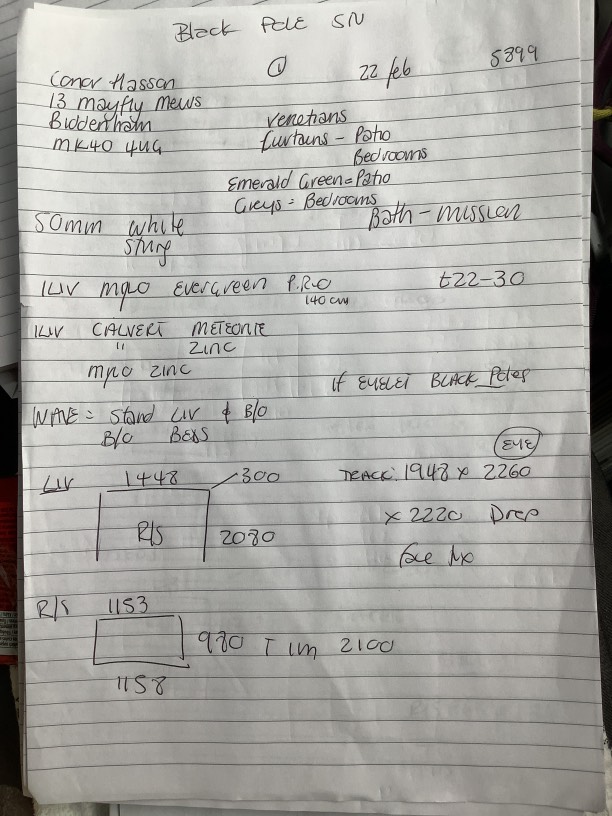 Black Pole SN
① 22 feb 5899
Conor Hassan
13 mayfly mews
Biddenham
MK40 4UG
Venetians
Curtains - Patio
Bedrooms
Emerald Green = Patio
Greys = Bedrooms
Bath - mission
50mm white
string
ILIV mpo Evergreen P.R.O
140cm
£22-30
ILIV CALVERT METEORITE
" ZINC
mpo zinc
If EYELET BLACK Poles
WAVE = Stand LIV & B/O
B/O BEDS
EYE
LIV 1448 300 TRACK: 1948 x 2260
R/S 2080 x 2220 Drop
R/S 1153
980 T 1m 2100
1158